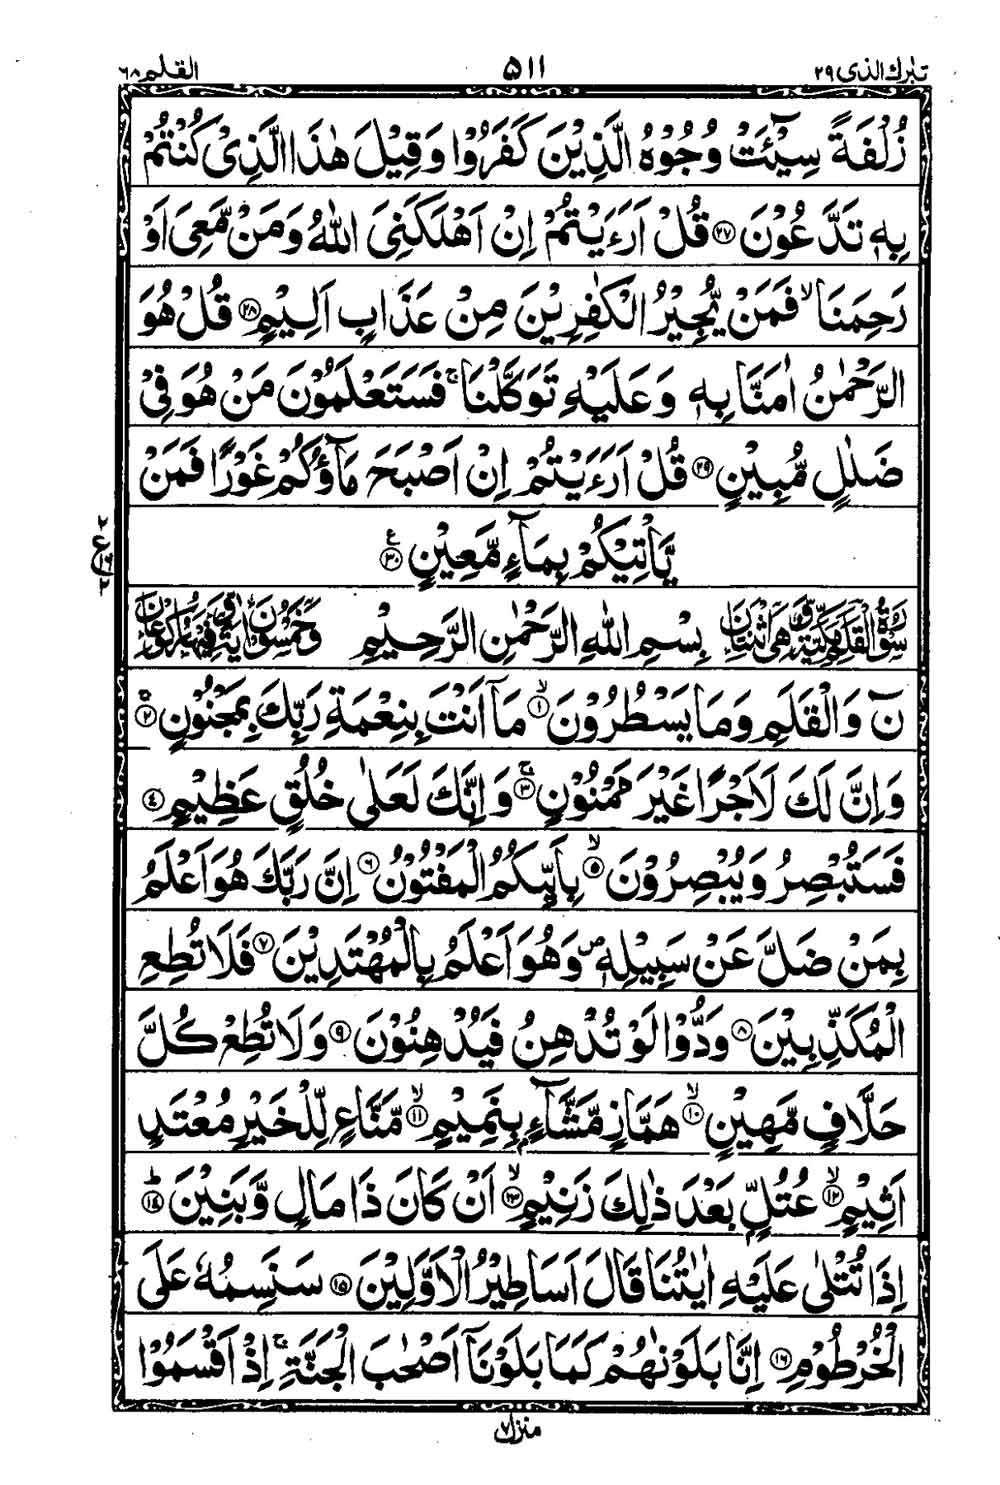 تبٰرك الذى ٢٩
٥١١
القلم ٦٨
زُلْفَةً سِيْٓـَٔتْ وُجُوْهُ الَّذِيْنَ كَفَرُوْا وَقِيْلَ هٰذَا الَّذِىْ كُنْتُمْ
بِهٖ تَدَّعُوْنَ ﴿٢٧﴾ قُلْ اَرَءَيْتُمْ اِنْ اَهْلَكَنِىَ اللّٰهُ وَمَنْ مَّعِىَ اَوْ
رَحِمَنَا ۙ فَمَنْ يُّجِيْرُ الْكٰفِرِيْنَ مِنْ عَذَابٍ اَلِيْمٍ ﴿٢٨﴾ قُلْ هُوَ
الرَّحْمٰنُ اٰمَنَّا بِهٖ وَعَلَيْهِ تَوَكَّلْنَا ۚ فَسَتَعْلَمُوْنَ مَنْ هُوَ فِىْ
ضَلٰلٍ مُّبِيْنٍ ﴿٢٩﴾ قُلْ اَرَءَيْتُمْ اِنْ اَصْبَحَ مَآؤُكُمْ غَوْرًا فَمَنْ
يَّاْتِيْكُمْ بِمَآءٍ مَّعِيْنٍ ﴿٣٠﴾ ع
٢ ع ١٦ ٢
سُوْرَةُ الْقَلَمِ مَكِّيَّةٌ وَّهِىَ اثْنَتَانِ بِسْمِ اللّٰهِ الرَّحْمٰنِ الرَّحِيْمِ وَخَمْسُوْنَ اٰيَةً وَّفِيْهَا رُكُوْعَانِ
نٓ وَالْقَلَمِ وَمَا يَسْطُرُوْنَ ۙ﴿١﴾ مَآ اَنْتَ بِنِعْمَةِ رَبِّكَ بِمَجْنُوْنٍ ۚ﴿٢﴾
وَاِنَّ لَكَ لَاَجْرًا غَيْرَ مَمْنُوْنٍ ۚ﴿٣﴾ وَاِنَّكَ لَعَلٰى خُلُقٍ عَظِيْمٍ ﴿٤﴾
فَسَتُبْصِرُ وَيُبْصِرُوْنَ ۙ﴿٥﴾ بِاَيِّىكُمُ الْمَفْتُوْنُ ﴿٦﴾ اِنَّ رَبَّكَ هُوَ اَعْلَمُ
بِمَنْ ضَلَّ عَنْ سَبِيْلِهٖ ۖ وَهُوَ اَعْلَمُ بِالْمُهْتَدِيْنَ ﴿٧﴾ فَلَا تُطِعِ
الْمُكَذِّبِيْنَ ﴿٨﴾ وَدُّوْا لَوْ تُدْهِنُ فَيُدْهِنُوْنَ ﴿٩﴾ وَلَا تُطِعْ كُلَّ
حَلَّافٍ مَّهِيْنٍ ۙ﴿١٠﴾ هَمَّازٍ مَّشَّآءٍۭ بِنَمِيْمٍ ۙ﴿١١﴾ مَّنَّاعٍ لِّلْخَيْرِ مُعْتَدٍ
اَثِيْمٍ ۙ﴿١٢﴾ عُتُلٍّۭ بَعْدَ ذٰلِكَ زَنِيْمٍ ۙ﴿١٣﴾ اَنْ كَانَ ذَا مَالٍ وَّبَنِيْنَ ؕ﴿١٤﴾
اِذَا تُتْلٰى عَلَيْهِ اٰيٰتُنَا قَالَ اَسَاطِيْرُ الْاَوَّلِيْنَ ﴿١٥﴾ سَنَسِمُهٗ عَلَى
الْخُرْطُوْمِ ﴿١٦﴾ اِنَّا بَلَوْنٰهُمْ كَمَا بَلَوْنَآ اَصْحٰبَ الْجَنَّةِ ۚ اِذْ اَقْسَمُوْا
منزل ٧